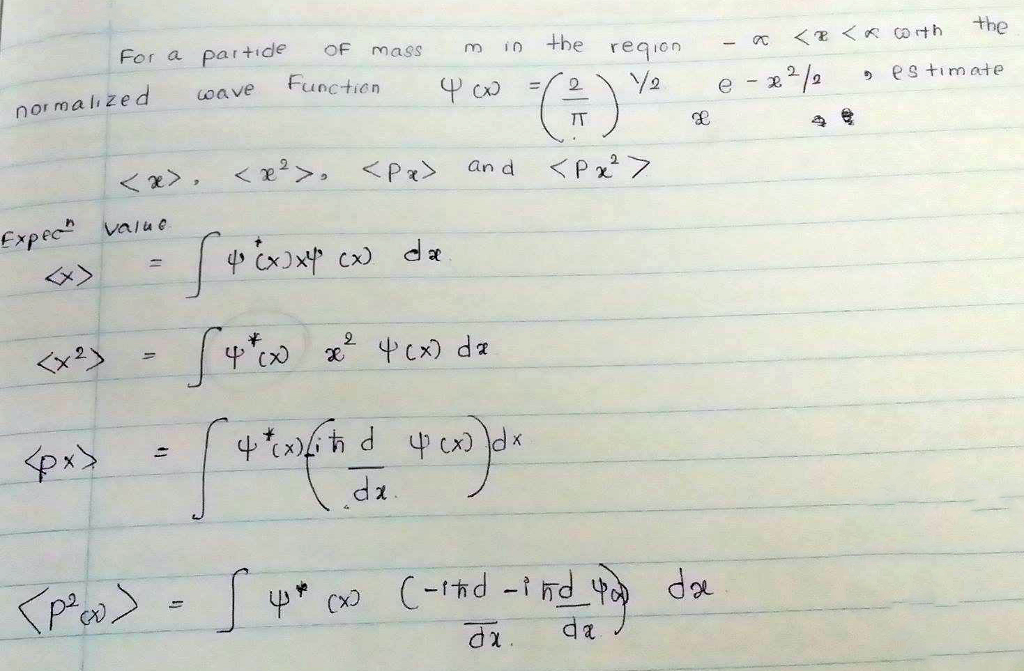 For a partide of mass m in the region - ∝ < x < ∝ with the
normalized wave function ψ(x) = (2/π) 1/2 x e - x²/2 , estimate
<x>, <x²>, <Px> and <Px²>
Expecⁿ value
<x> = ∫ ψ*(x)xψ (x) dx
<x²> = ∫ ψ*(x) x² ψ(x) dx
<px> = ∫ ψ*(x)(iħ d/dx ψ(x))dx
<P²(x)> = ∫ ψ* (x) (-iħd/dx -iħd/dx ψx) dx